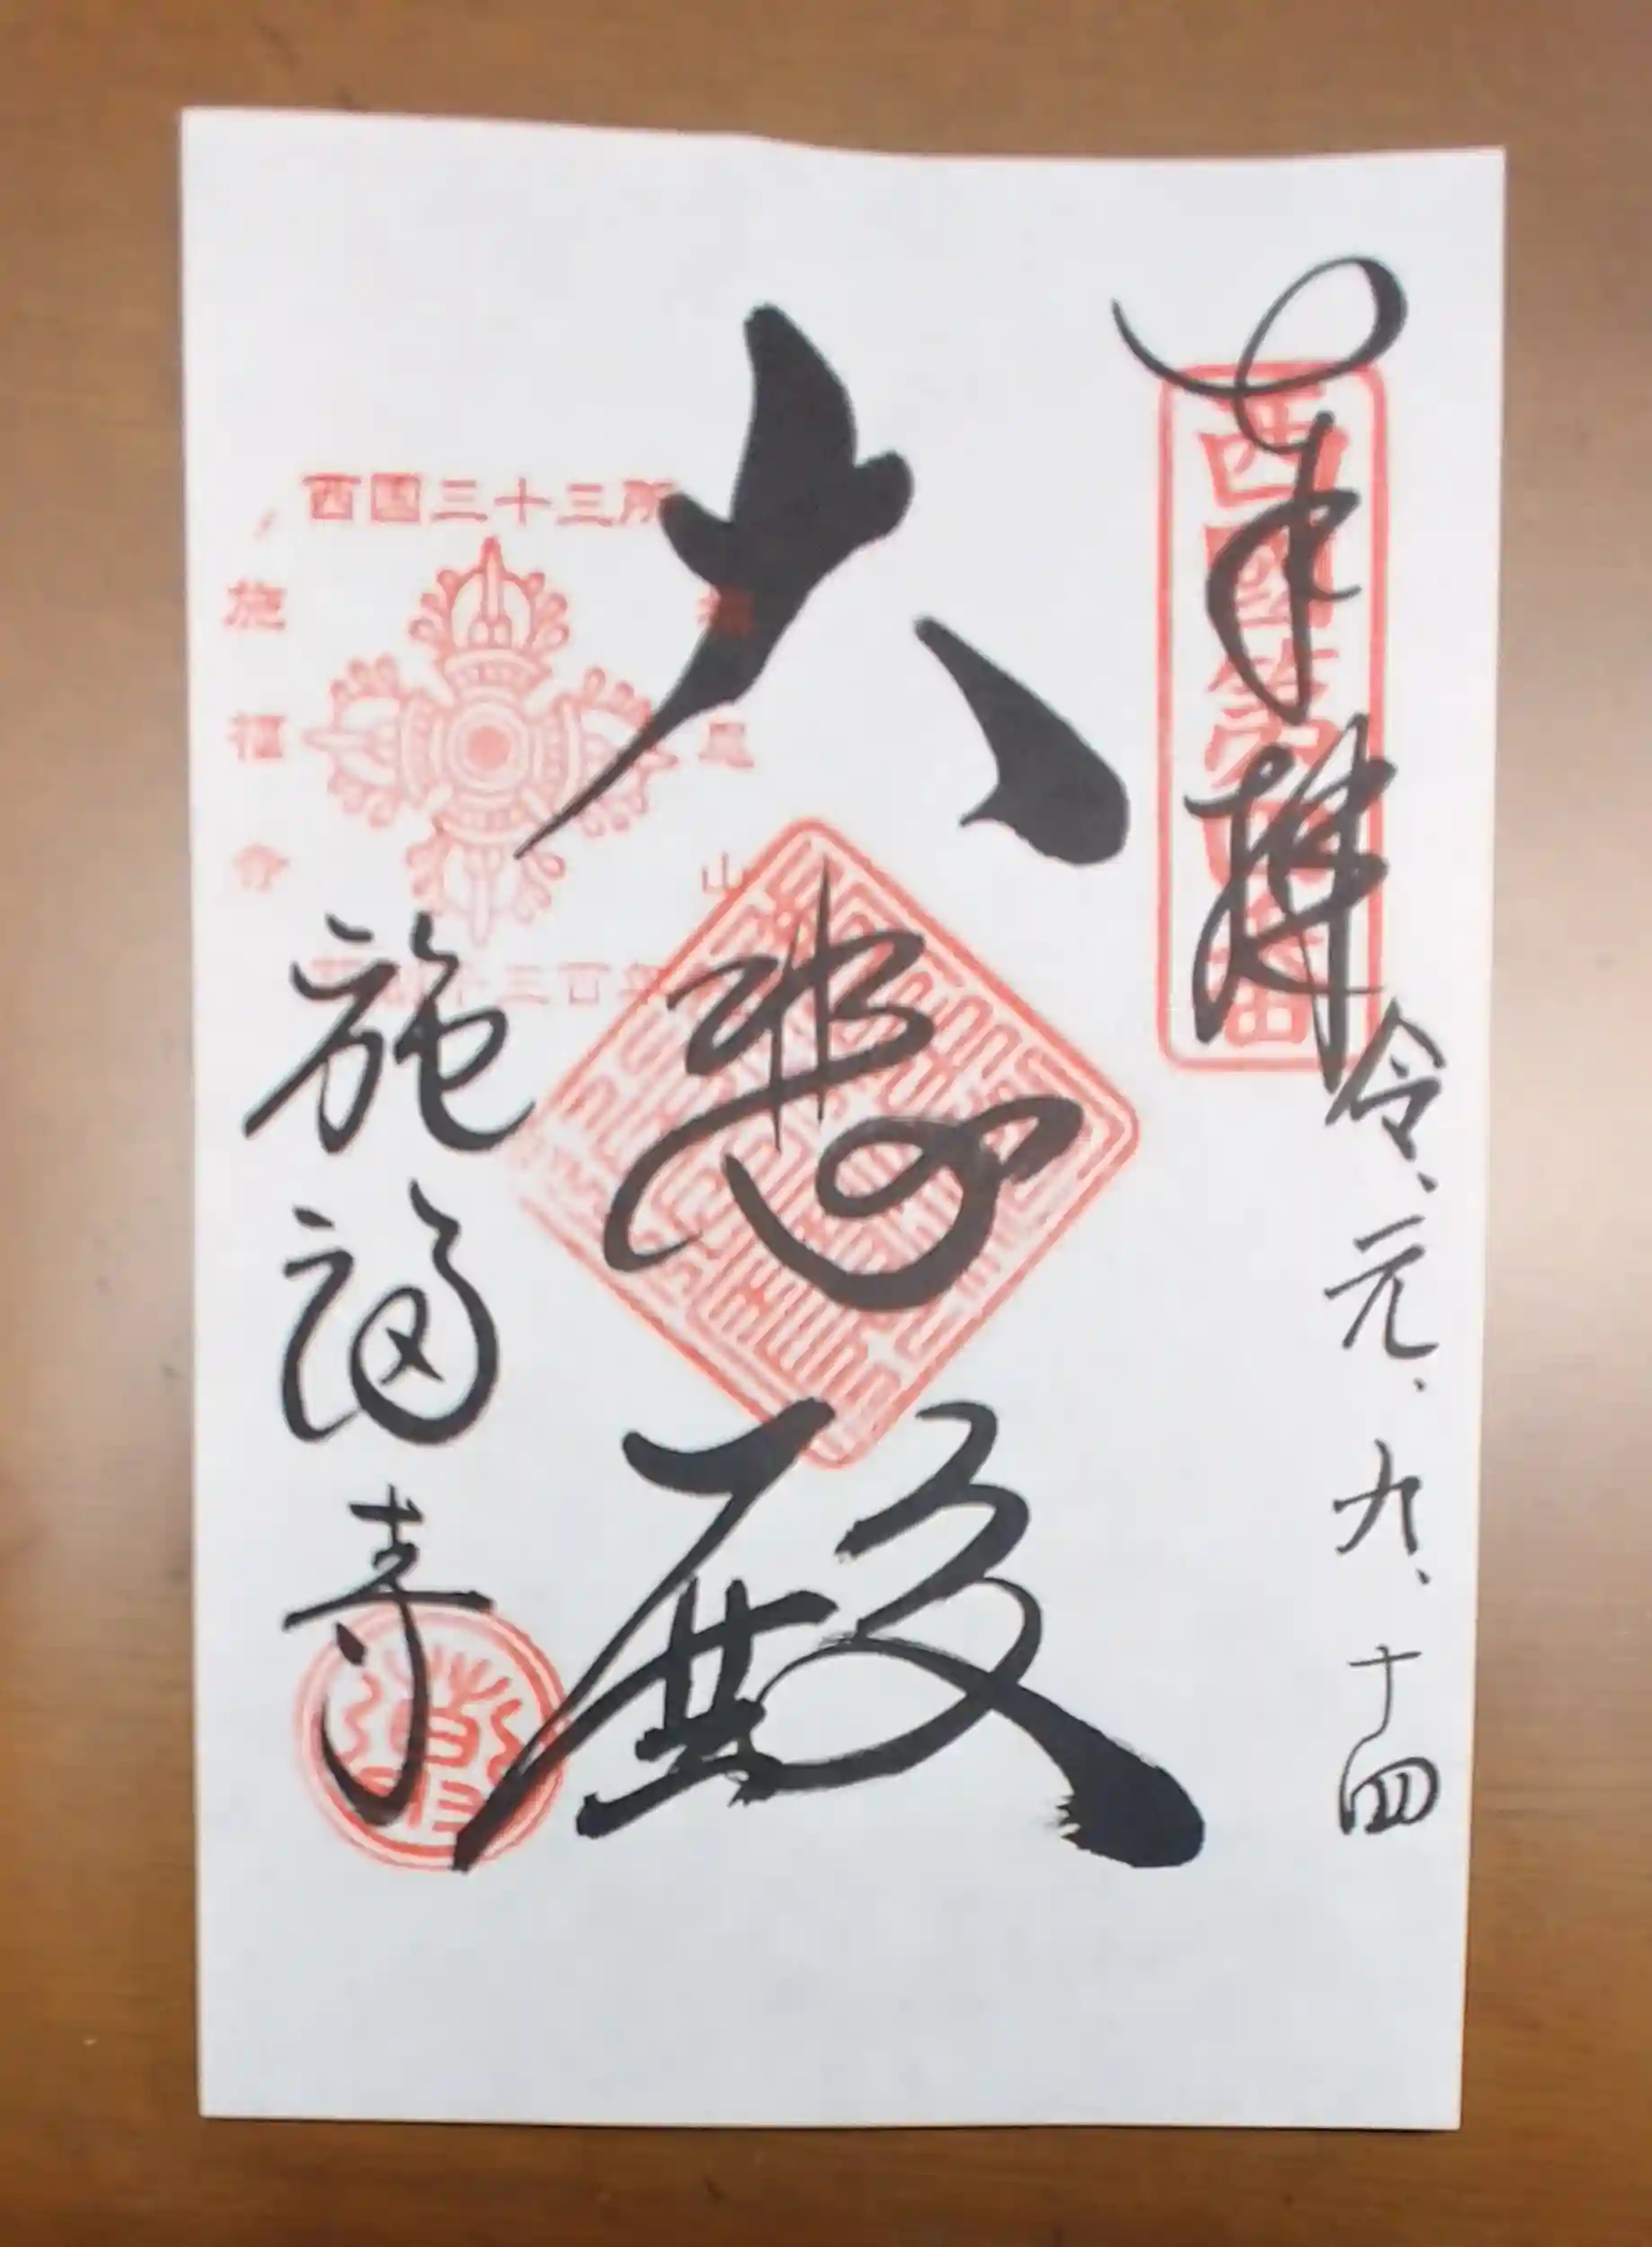 奉拝
西国第四番
令、元、九、十四
大悲殿
西国三十三所
施福寺
山
施福寺